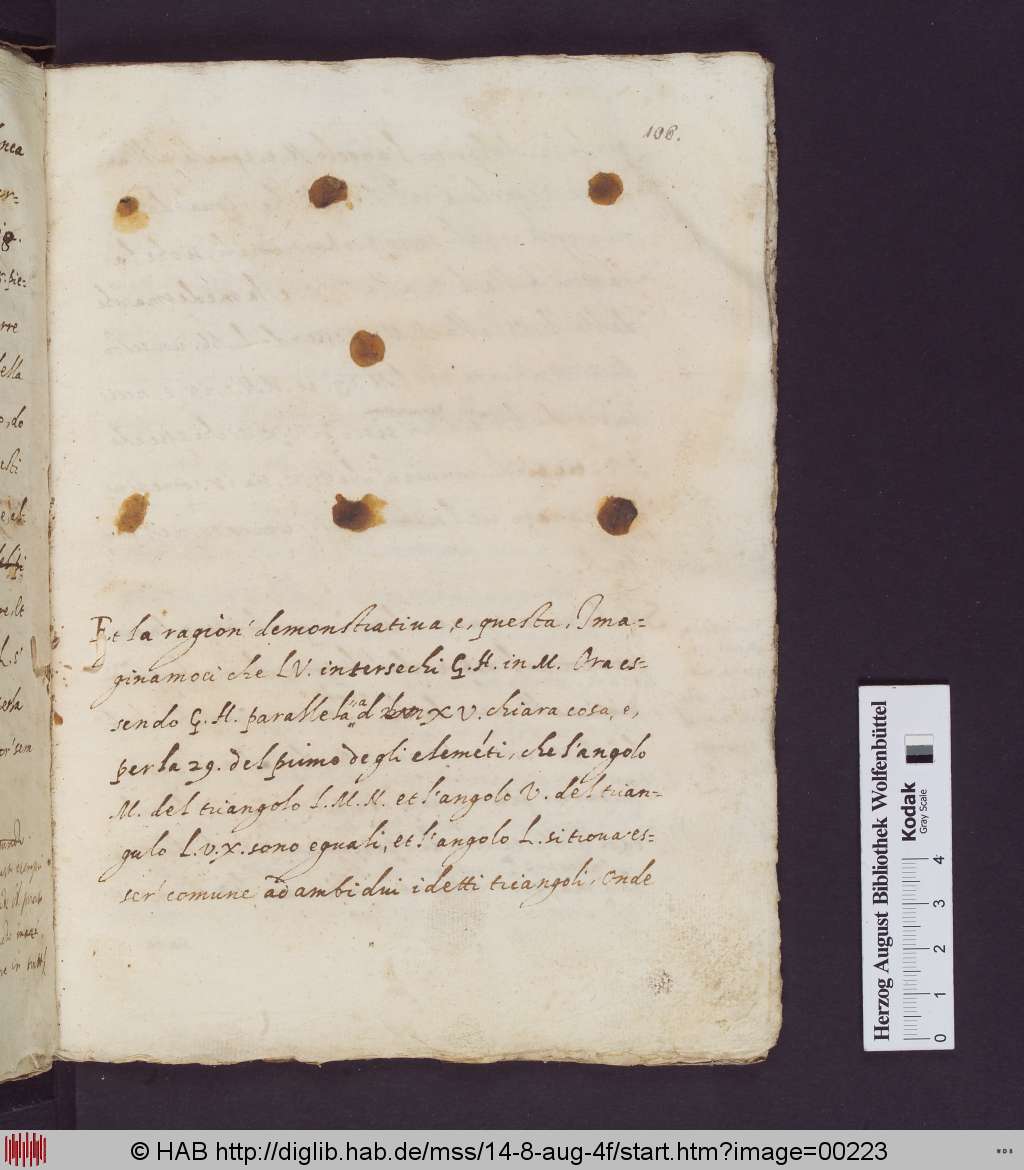 108.
Et la ragion' demonstratiua, e, questa, Ima-
ginamoci che L V. intersechi G. H. in M. Ora es-
sendo G. H. parallela ad X V. chiara cosa, e,
per la 29. del primo degli eleméti, che l'angolo
M. del triangolo L. M. N. et l'angolo V. del trian-
gulo L. V. X. sono eguali, et l'angolo L. si troua es-
ser' comune ad ambidui i detti triangoli, Onde
nea
. pie-
rre
ella
do
esti
perla
Herzog August Bibliothek Wolfenbüttel
Kodak
Gray Scale
0 1 2 3 4
© HAB http://diglib.hab.de/mss/14-8-aug-4f/start.htm?image=00223